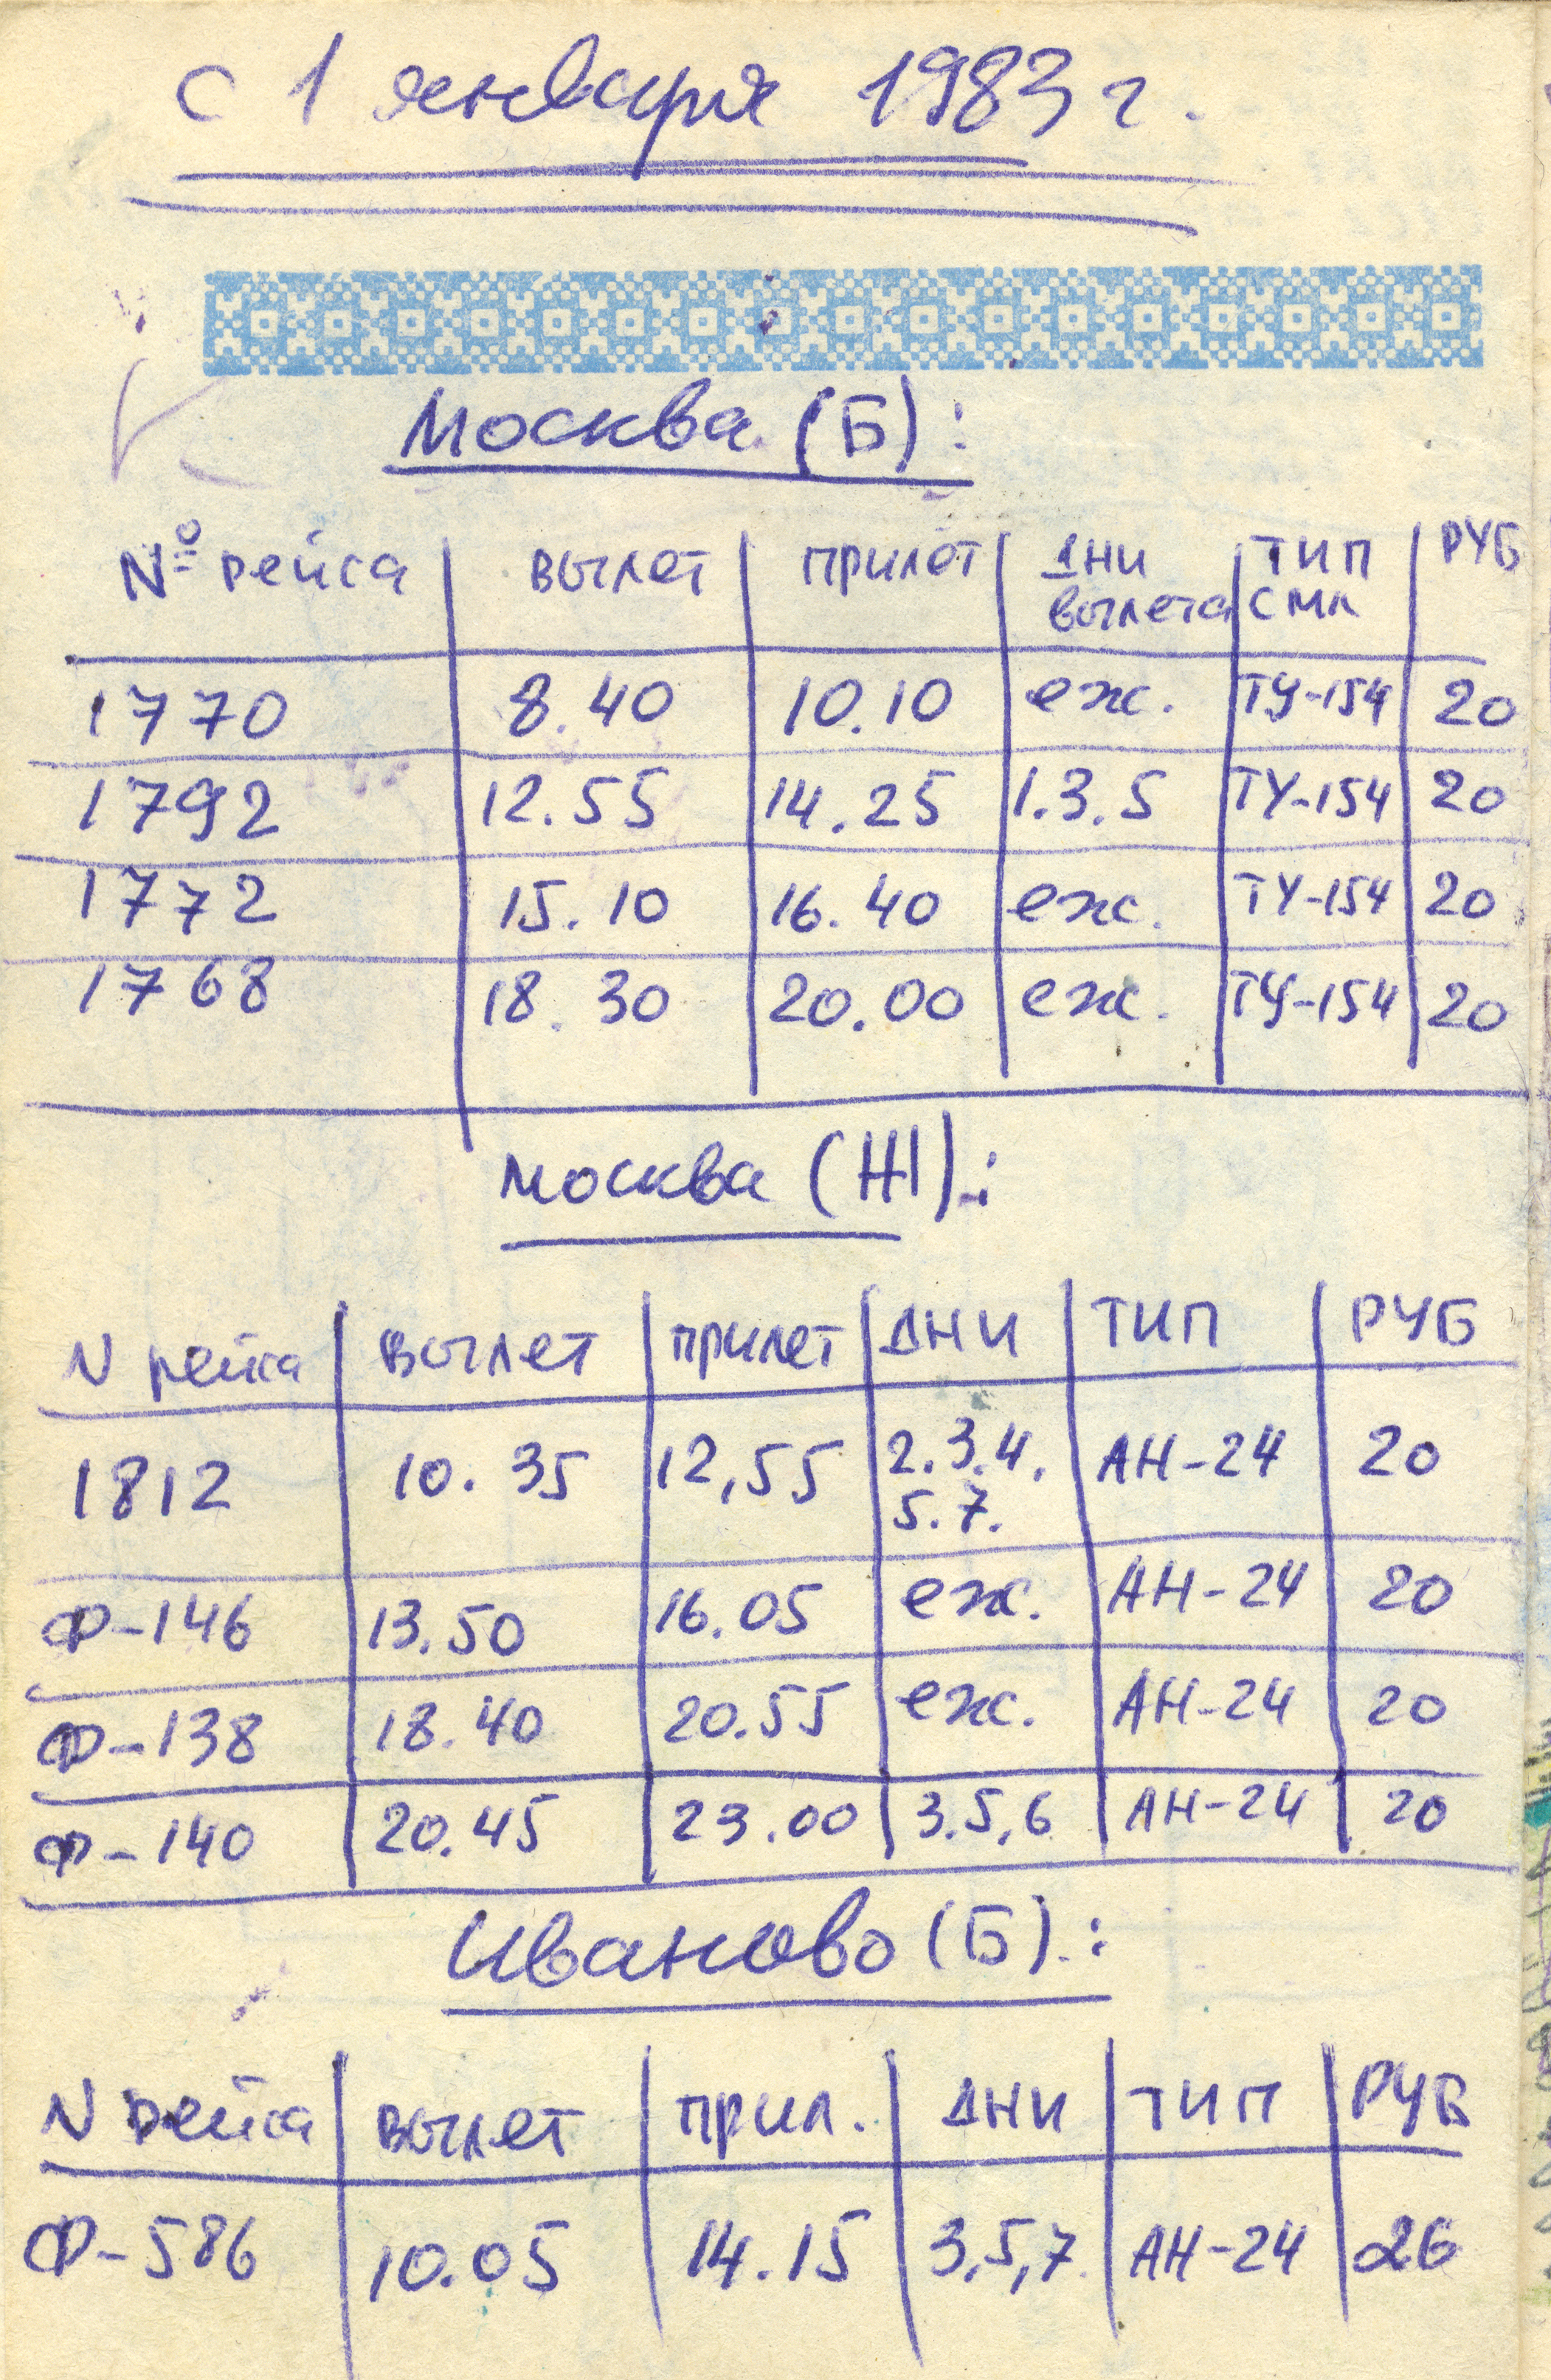 с 1 января 1983 г.
Москва (Б):
№ рейса вылет прилет дни вылета тип смл РУБ
1770 8.40 10.10 еж. ТУ-154 20
1792 12.55 14.25 1.3.5 ТУ-154 20
1772 15.10 16.40 еж. ТУ-154 20
1768 18.30 20.00 еж. ТУ-154 20
Москва (Ж):
N рейса вылет прилет ДНИ ТИП РУБ
1812 10.35 12,55 2.3.4. 5.7. АН-24 20
Ф-146 13.50 16.05 еж. АН-24 20
Ф-138 18.40 20.55 еж. АН-24 20
Ф-140 20.45 23.00 3.5,6 АН-24 20
Иваново (Б):
N рейса вылет прил. ДНИ ТИП РУБ
Ф-586 10.05 14.15 3,5,7. АН-24 26